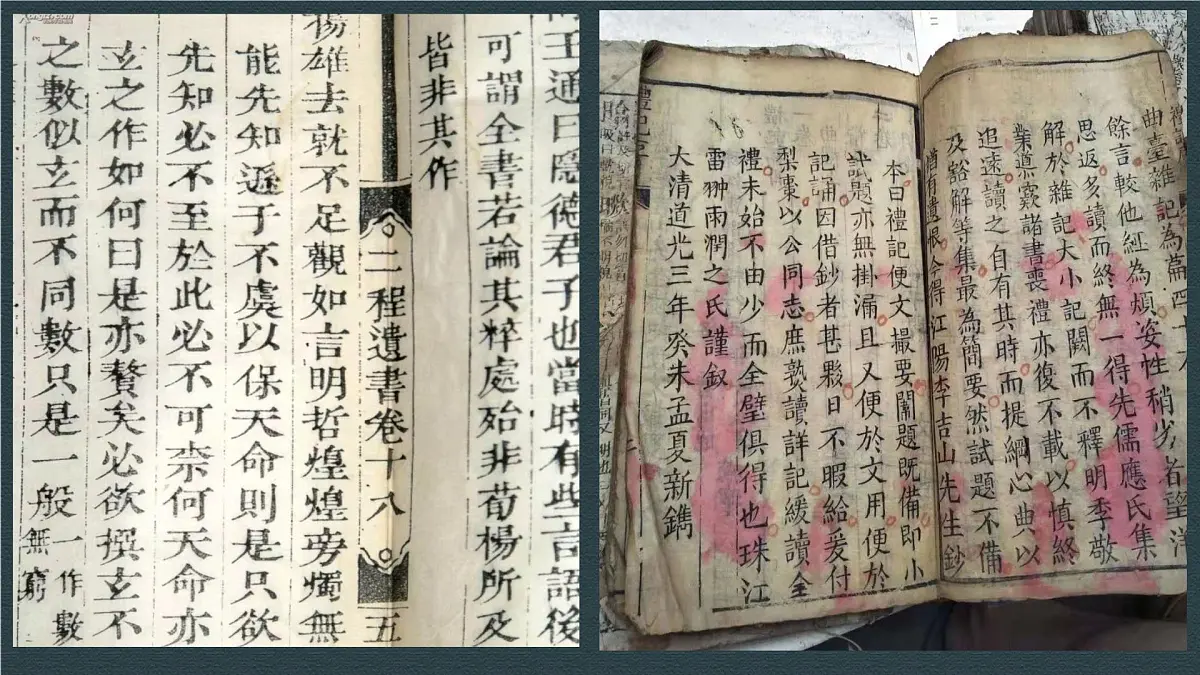 王通曰隱德君子也當時有些言語後
可謂全書若論其粹處殆非荀楊所及
皆非其作
二程遺書卷十八
五
楊雄去就不足觀如言明哲煌煌旁燭無
能先知遜于不虞以保天命則是只欲
先知必不至於此必不可柰何天命亦
玄之作如何曰是亦贅矣必欲撰玄不
之數似玄而不同數只是一般一作數
無窮
曲臺雜記為篇四十九
餘言較他經為煩姿性稍劣者望洋
思返多讀而終無一得先儒應氏集
解於雜記大小記闕而不釋明季敬
業遵諸書喪禮亦復不載以慎終
追遠讀之自有其時而提綱心典以
及豁解等集最為簡要然試題不備
猶有遺恨今得江陽李吉山先生鈔
本曰禮記便文撮要闈題既備即小
試題亦無掛漏且又便於文用便於
記誦因借鈔者甚夥日不暇給爰付
梨棗以公同志庶敦讀詳記緩讀全
禮未始不由少而全璧俱得也珠江
雷翀雨潤之氏謹敘
大清道光三年癸未孟夏新鐫